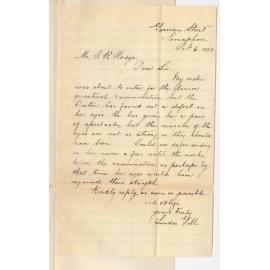 Street
Semaphore
Oct 6. 1898
Mr. A R Hodge
Dear Sir
My sister
was about to enter for the Senior
practical examination but the
Doctor has found out a defect in
her eyes. He has given her a pair
of spectacles but the muscles of the
eyes are not as strong as they should
have been. Could we defer sending
in her name & fee until two weeks
before the examination as perhaps by
that time her eyes would have
regained their strength.
Kindly reply as soon as possible
and oblige
Yours truly
Linda Gill